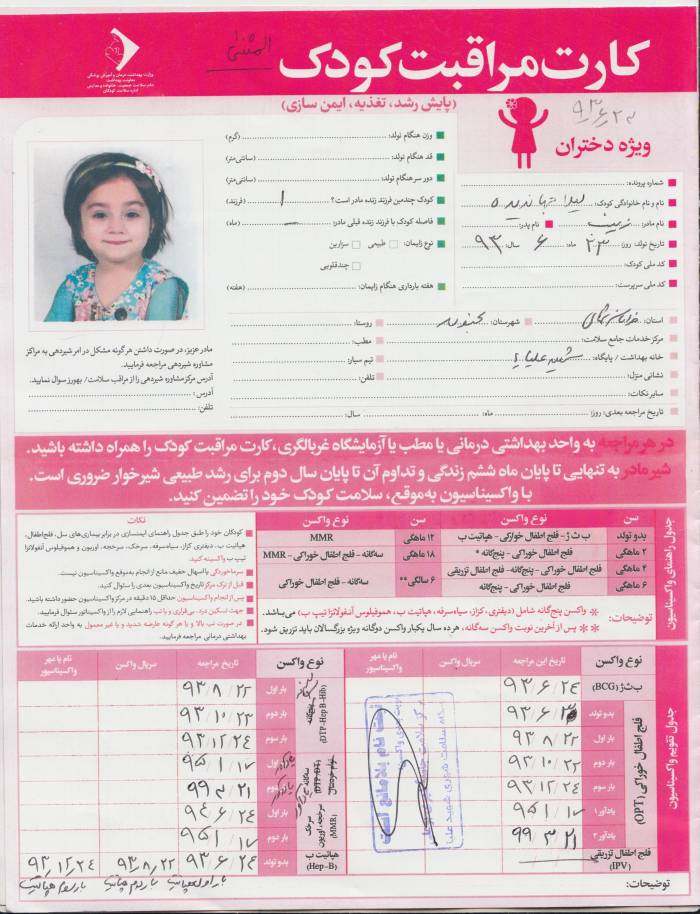 کارت مراقبت کودک
المثنی
وزارت بهداشت، درمان و آموزش پزشکی
معاونت بهداشت
دفتر سلامت جمعیت، خانواده و مدارس
اداره سلامت کودکان
(پایش رشد، تغذیه، ایمن سازی)
۹۳٫۶٫۲۳
ویژه دختران
شماره پرونده:
نام و نام خانوادگی کودک:
نام مادر: زینب نام پدر:
تاریخ تولد: روز: ۲۳ ماه: ۶ سال: ۹۳
کد ملی کودک:
کد ملی سرپرست:
وزن هنگام تولد: (گرم)
قد هنگام تولد: (سانتی‌متر)
دور سر هنگام تولد: (سانتی‌متر)
کودک چندمین فرزند زنده مادر است؟ ۱ (فرزند)
فاصله کودک با فرزند زنده قبلی مادر: – (ماه)
نوع زایمان: طبیعی سزارین
چندقلویی
هفته بارداری هنگام زایمان: (هفته)
استان: خراسان شمالی شهرستان: بجنورد روستا:
مرکز خدمات جامع سلامت: مطب:
خانه بهداشت / پایگاه: تیم سیار:
نشانی منزل: تلفن:
سایر نکات:
تاریخ مراجعه بعدی: روز: ماه: سال:
مادر عزیز، در صورت داشتن هرگونه مشکل در امر شیردهی به مراکز
مشاوره شیردهی مراجعه فرمایید.
آدرس مرکز مشاوره شیردهی را از مراقب سلامت / بهورز سوال نمایید.
آدرس:
تلفن:
در هر مراجعه به واحد بهداشتی درمانی یا مطب یا آزمایشگاه غربالگری، کارت مراقبت کودک را همراه داشته باشید.
شیر مادر به تنهایی تا پایان ماه ششم زندگی و تداوم آن تا پایان سال دوم برای رشد طبیعی شیرخوار ضروری است.
با واکسیناسیون به‌موقع، سلامت کودک خود را تضمین کنید.
جدول راهنمای واکسیناسیون
سن نوع واکسن سن نوع واکسن
بدو تولد ب ث ژ - فلج اطفال خوراکی - هپاتیت ب ۱۲ ماهگی MMR
۲ ماهگی فلج اطفال خوراکی - پنج‌گانه * ۱۸ ماهگی سه‌گانه - فلج اطفال خوراکی - MMR
۴ ماهگی فلج اطفال خوراکی - پنج‌گانه - فلج اطفال تزریقی ۶ سالگی ** سه‌گانه - فلج اطفال خوراکی
۶ ماهگی فلج اطفال خوراکی - پنج‌گانه
توضیحات:
* واکسن پنج‌گانه شامل (دیفتری، کزاز، سیاه‌سرفه، هپاتیت ب، هموفیلوس آنفولانزا تیپ ب) می‌باشد.
** پس از آخرین نوبت واکسن سه‌گانه، هر ده سال یکبار واکسن دوگانه ویژه بزرگسالان باید تزریق شود.
نکات
کودکان خود را طبق جدول راهنمای ایمنسازی در برابر بیماری‌های سل، فلج‌اطفال،
هپاتیت ب، دیفتری، کزاز، سیاه‌سرفه، سرخک، سرخجه، اوریون و هموفیلوس آنفولانزا
تیپ ب واکسینه کنید.
سرماخوردگی یا اسهال خفیف مانع از انجام به‌موقع واکسیناسیون نیست.
قبل از ترک مرکز تاریخ واکسیناسیون بعدی را سئوال کنید.
پس از انجام واکسیناسیون حداقل ۱۵ دقیقه در مرکز واکسیناسیون حضور داشته باشید.
جهت تسکین درد، بی‌قراری و تب راهنمایی لازم را از واکسیناتور سئوال فرمایید.
در صورت تب بالا و یا هر گونه عارضه شدید و یا غیر معمول به واحد ارائه خدمات
بهداشتی درمانی مراجعه فرمایید.
جدول تقویم واکسیناسیون
نوع واکسن تاریخ این مراجعه سریال واکسن نام یا مهر واکسیناسیون
ب ث ژ (BCG) ۹۳/۶/۲۴
فلج اطفال خوراکی (OPT)
بدو تولد ۹۳/۶/
بار اول ۹۳/۸/۲۲
بار دوم ۹۳/۱۰/۲۲
بار سوم ۹۳/۱۲/۲۴
یادآور ۱ ۹۵/۱/۱۷
یادآور ۲ ۹۹/۳/۲۱
فلج اطفال تزریقی (IPV)
نوع واکسن تاریخ مراجعه سریال واکسن نام یا مهر واکسیناسیون
پنجگانه (DTP-HepB-Hib)
بار اول ۹۳/۸/۲۲
بار دوم ۹۳/۱۰/۲۳
بار سوم ۹۳/۱۲/۲۴
یادآور ۹۵/۱/۱۷
یادآور ۹۹/۳/۲۱
سرخک، سرخجه، اوریون (MMR)
بار اول ۹۴/۶/۲۴
بار دوم ۹۵/۱/۱۷
هپاتیت ب (Hep-B) بدو تولد ۹۳/۶/۲۴ ۹۳/۸/۲۲ ۹۳/۱۲/۲۴
بار اول هپاتیت بار دوم هپاتیت بار سوم هپاتیت
توضیحات: